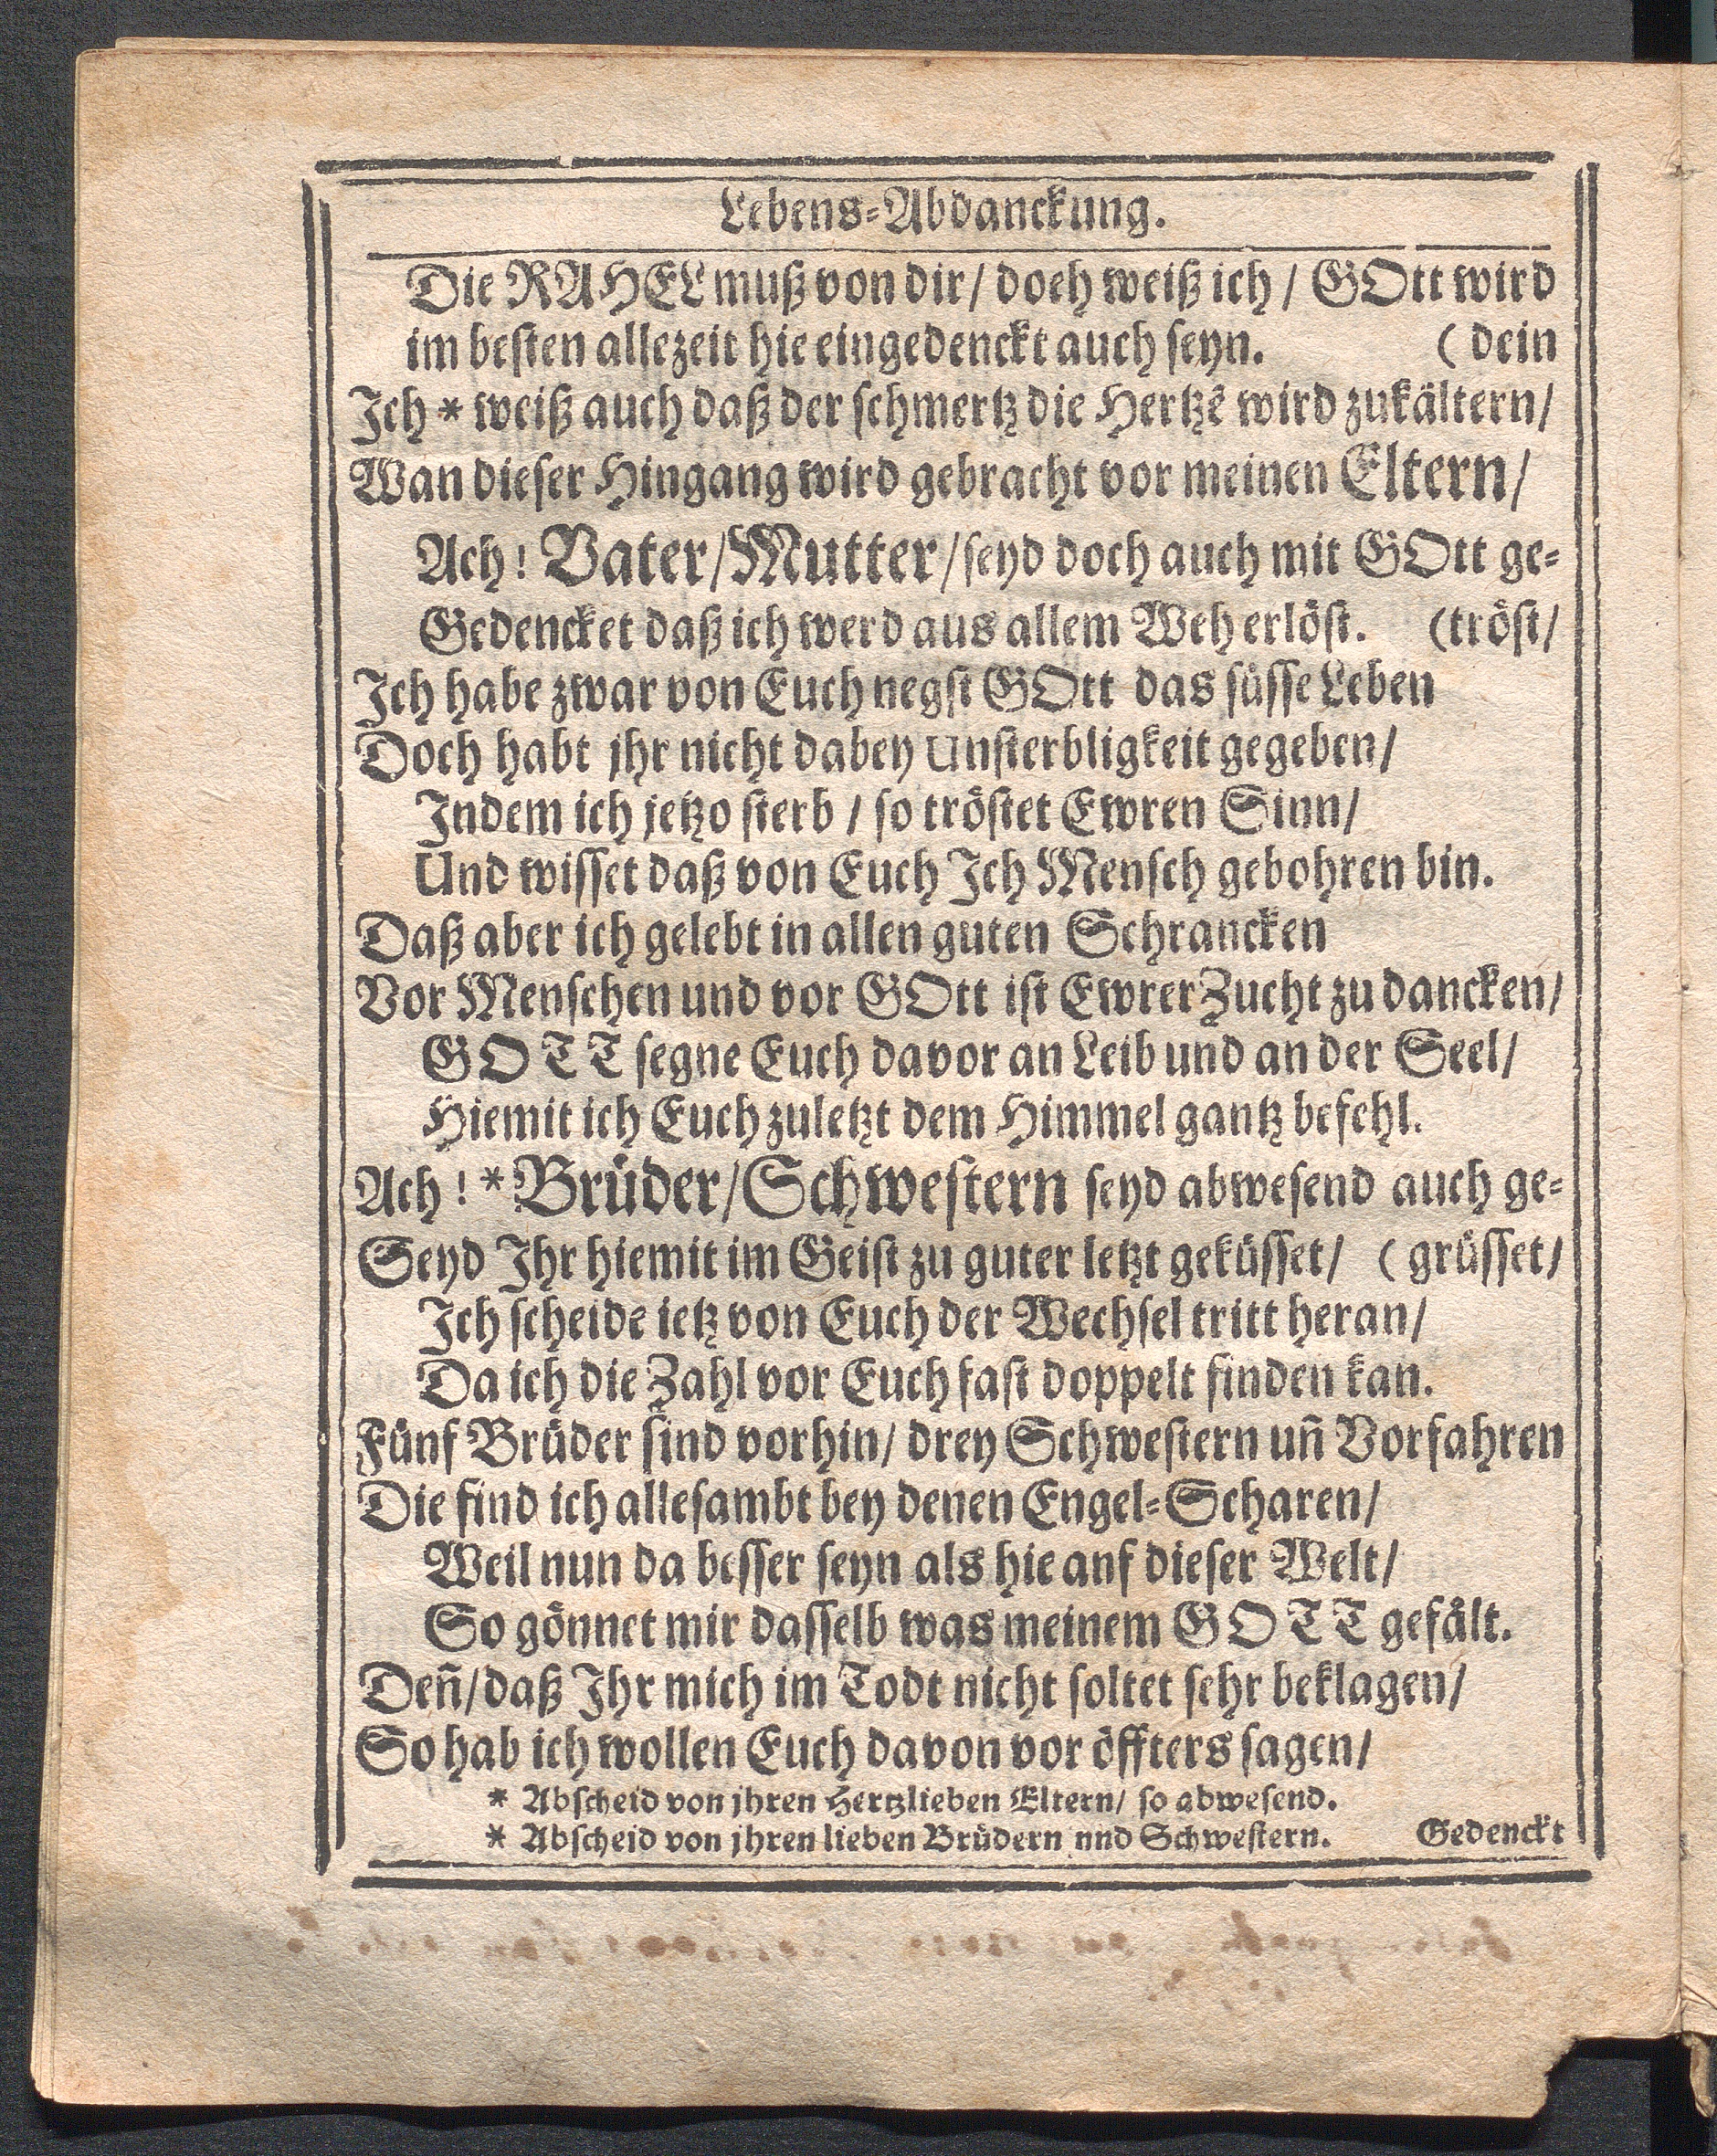 Lebens-Abdanckung.
Die RAHEL muß von dir / doch weiß ich / GOtt wird
im besten allezeit hie eingedenckt auch seyn. ( dein
Ich * weiß auch daß der schmertz die Hertzẽ wird zukältern /
Wan dieser Hingang wird gebracht vor meinen Eltern /
Ach ! Vater / Mutter / seyd doch auch mit GOtt ge-
Gedencket daß ich werd aus allem Weh erlöst. (tröst /
Ich habe zwar von Euch negst GOtt das süsse Leben
Doch habt jhr nicht dabey Unsterbligkeit gegeben /
Indem ich jetzo sterb / so tröstet Ewren Sinn /
Und wisset daß von Euch Ich Mensch gebohren bin.
Daß aber ich gelebt in allen guten Schrancken
Vor Menschen und vor GOtt ist Ewrer Zucht zu dancken /
GOTT segne Euch davor an Leib und an der Seel /
Hiemit ich Euch zuletzt dem Himmel gantz befehl.
Ach ! * Brüder / Schwestern seyd abwesend auch ge-
Seyd Ihr hiemit im Geist zu guter letzt geküsset / ( grüsset /
Ich scheide ietz von Euch der Wechsel tritt heran /
Da ich die Zahl vor Euch fast doppelt finden kan.
Fünf Brüder sind vorhin / drey Schwestern uñ Vorfahren
Die find ich allesambt bey denen Engel-Scharen /
Weil nun da besser seyn als hie anf dieser Welt /
So gönnet mir dasselb was meinem GOTT gefält.
Deñ / daß Ihr mich im Todt nicht soltet sehr beklagen /
So hab ich wollen Euch davon vor öffters sagen /
* Abscheid von jhren Hertzlieben Eltern / so abwesend.
* Abscheid von jhren lieben Brüdern nnd Schwestern. Gedenckt